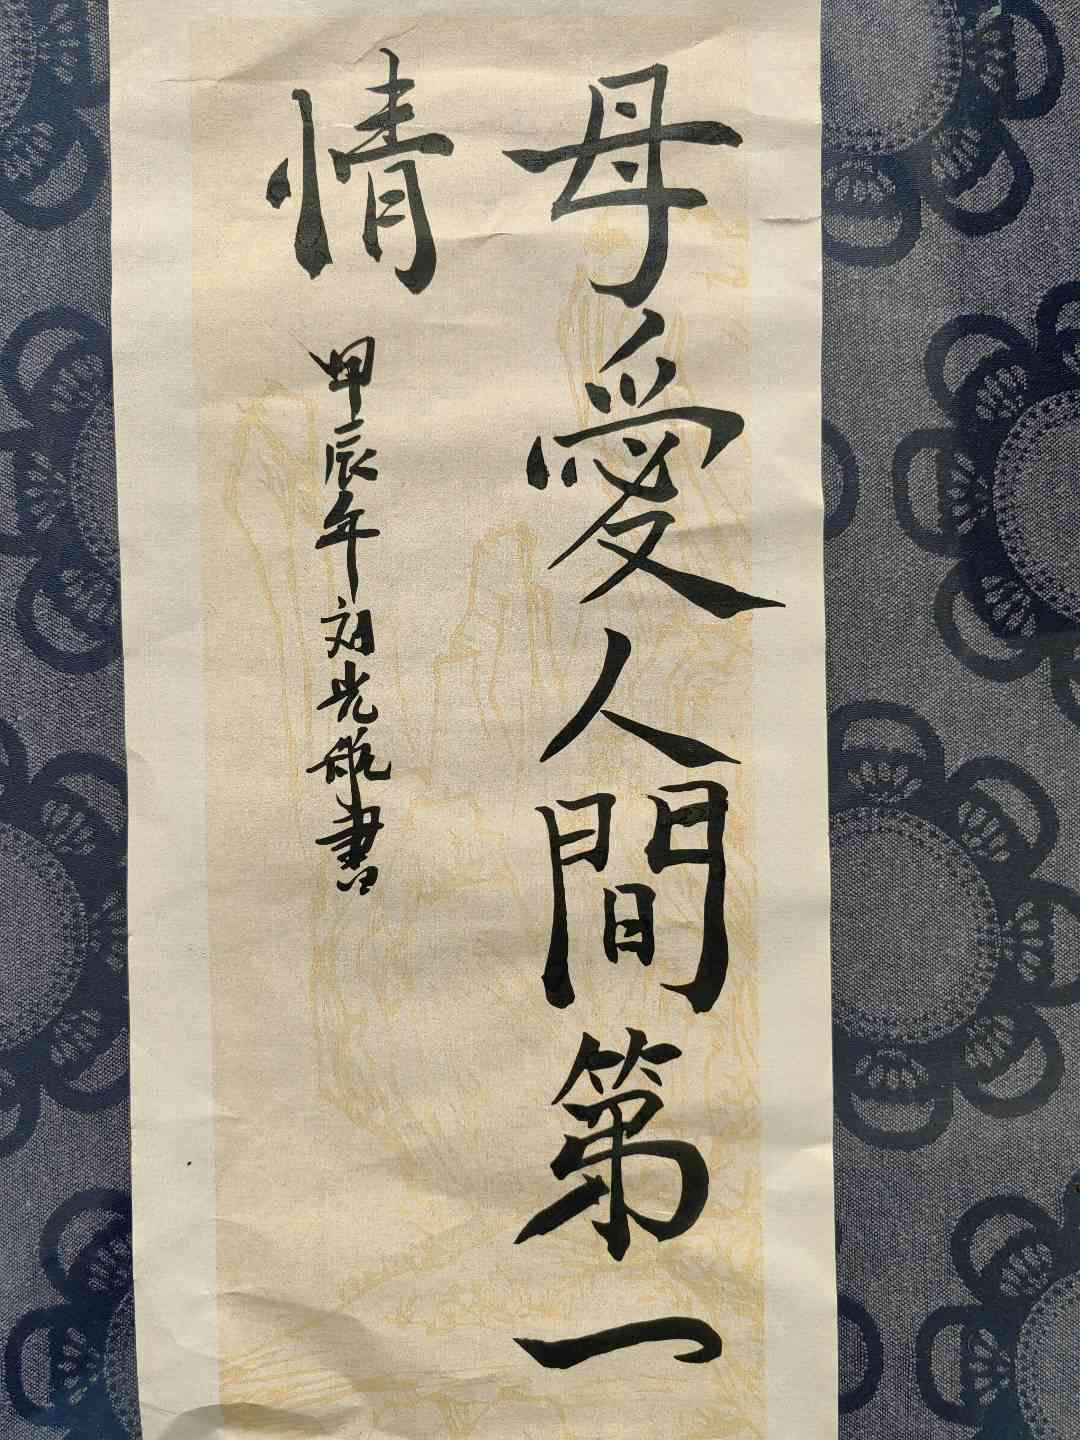 母愛人間第一
情
甲辰年刘光航書